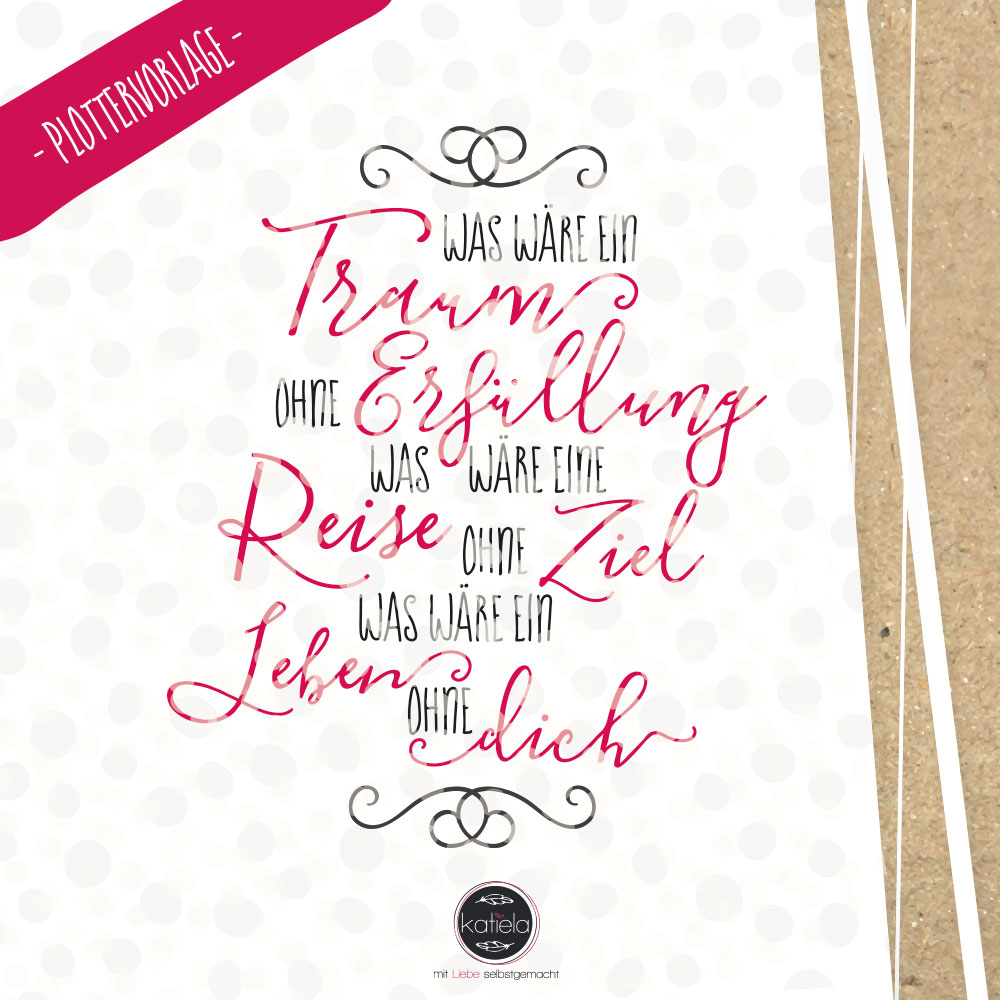 - PLOTTERVORLAGE -
WAS WÄRE EIN
Traum
OHNE Erfüllung
WAS WÄRE EINE
Reise OHNE Ziel
WAS WÄRE EIN
Leben OHNE dich
katiela
mit Liebe selbstgemacht